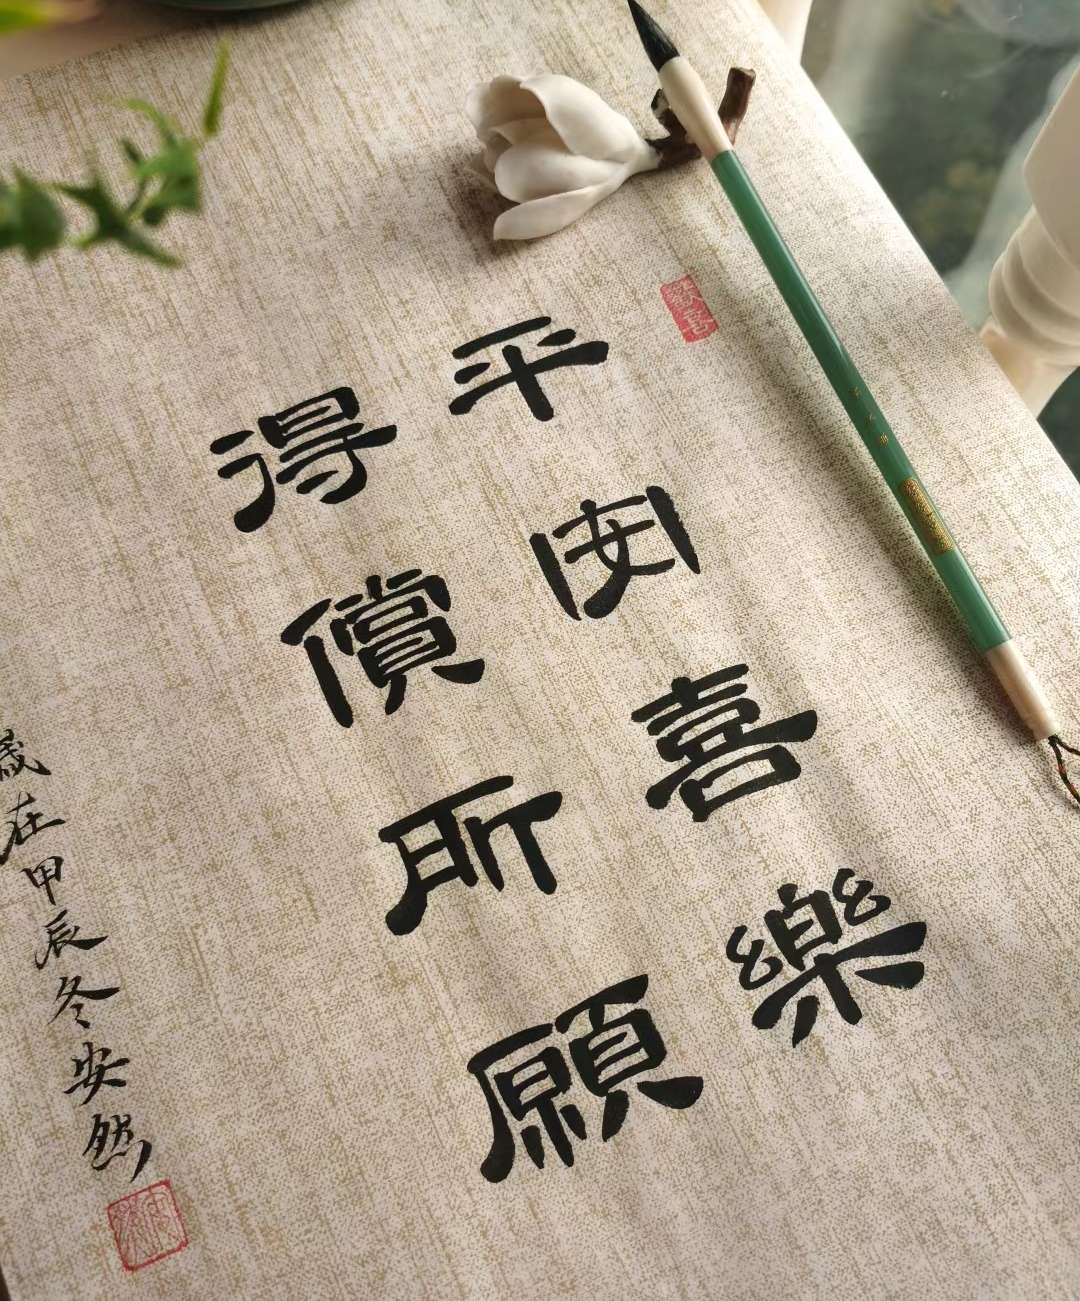 平安喜樂
得償所願
歲在甲辰冬安然